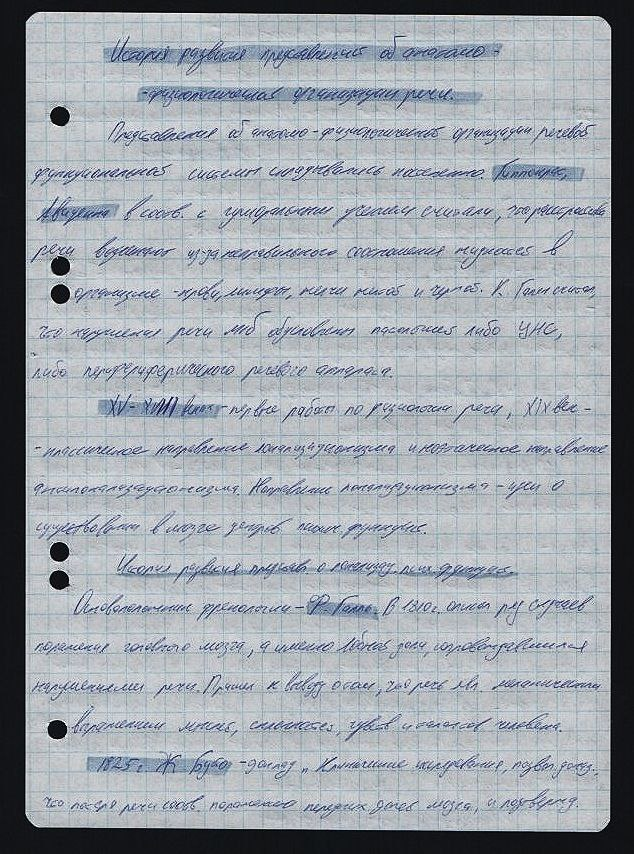 История развития представлений об анатомо-
-физиологической организации речи.
Представления об анатомо-физиологической организации речевой
функциональной системы складывались постепенно. Гиппократ,
Авиценна в соотв. с гуморальным учением считали, что расстройства
речи возникают из-за неправильного соотношения жидкостей в
организме - крови, лимфы, желчи желтой и черной. К. Гален считал,
что нарушения речи мгб обусловлены патологией либо ЦНС,
либо периферического речевого аппарата.
XV-XVIII века - первые работы по физиологии речи, XIX век -
- классическое направление локализационизма и ноэтическое направление
антилокализационизма. Направление локализационизма - идеи о
существовании в мозге центров псих. функций.
История развития представ. о локализац. псих. функций.
Основоположник френологии - Ф. Галль. В 1810г. описал ряд случаев
поражения головного мозга, а именно лобной доли, сопровождавшихся
нарушениями речи. Пришел к выводу о том, что речь явл. механическим
выражением мыслей, способностей, чувств и талантов человека.
1825г. Ж. Буйо - доклад „Клинические исследования, подтв. доказ.,
что потеря речи соотв. поражению передних долей мозга, и подтвержд.